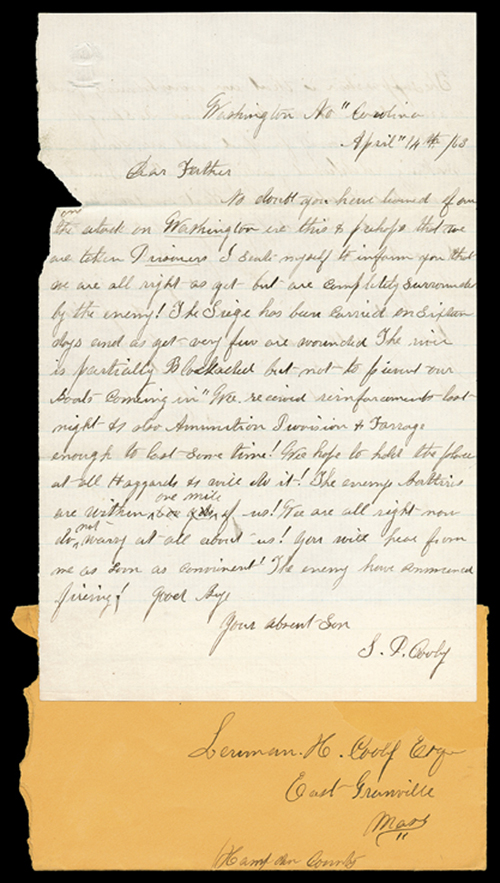 Washington No" Carolina
April" 14th /63
Dear Father
No doubt you have learned of our
the attack on Washington ere this & prehaps that we
are taken Prisoners I seat myself to inform you that
we are all right as yet but are completely surrounded
by the enemy! The Siege has been carried on Sixteen
days and as yet very few are wounded The river
is partially Blockaded but not to prevent our
Boats coming in" We received reinforcements last
night & also Amunition Provision & Forrage
enough to last some time! We hope to hold the place
at all Haggards & will do it! The enemys batteries
are within one mile of us! We are all right now
do not worry at all about us! You will hear from
me as soon as convinent! The enemy have commenced
fireing! Good Bye
Your absent Son
S. P. Cooly
Leuman. H. Cooly Esqr
East Granville
Mass
Hampden County